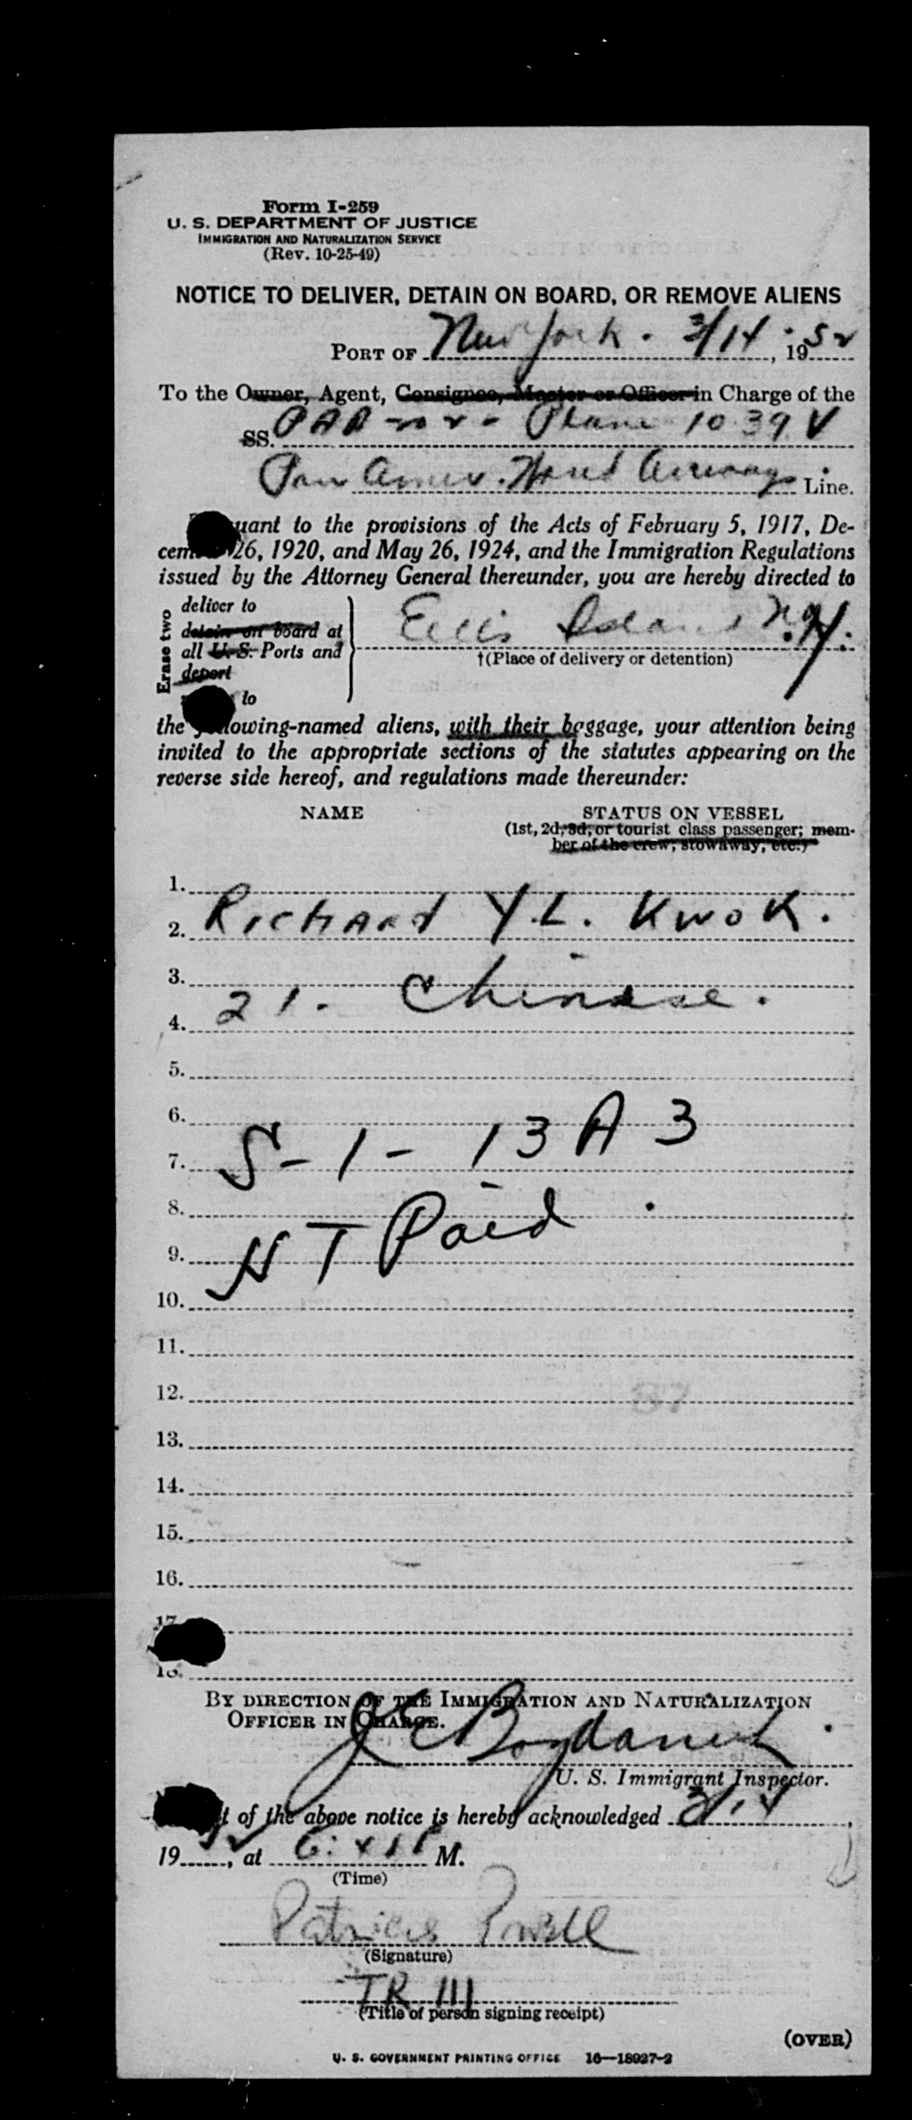 Form I-259
U. S. DEPARTMENT OF JUSTICE
IMMIGRATION AND NATURALIZATION SERVICE
(Rev. 10-25-49)
NOTICE TO DELIVER, DETAIN ON BOARD, OR REMOVE ALIENS
PORT OF New York. 3/14, 1952
To the Owner, Agent, Consignee, Master or Officer in Charge of the
SS. Plane 1039 V
Pan Amer. World Airways Line.
uant to the provisions of the Acts of February 5, 1917, De-
cem 26, 1920, and May 26, 1924, and the Immigration Regulations
issued by the Attorney General thereunder, you are hereby directed to
Erase two
deliver to
detain on board at
all U. S. Ports and
deport
to
Ellis Island N.Y.
†(Place of delivery or detention)
the following-named aliens, with their baggage, your attention being
invited to the appropriate sections of the statutes appearing on the
reverse side hereof, and regulations made thereunder:
NAME STATUS ON VESSEL
(1st, 2d, 3d, or tourist class passenger; mem-
ber of the crew; stowaway; etc.)
1.
2. Richard Y.L. Kwok.
3.
4. 21. Chinese.
5.
6.
7. S-1-13A3
8.
9. HT Paid.
10.
11.
12. 87
13.
14.
15.
16.
17.
18.
BY DIRECTION OF THE IMMIGRATION AND NATURALIZATION
OFFICER IN CHARGE.
U. S. Immigrant Inspector.
t of the above notice is hereby acknowledged 3/14,
1952, at M.
(Time)
Patricia Powell
(Signature)
TR III
(Title of person signing receipt)
(OVER)
U. S. GOVERNMENT PRINTING OFFICE 16—18927-2